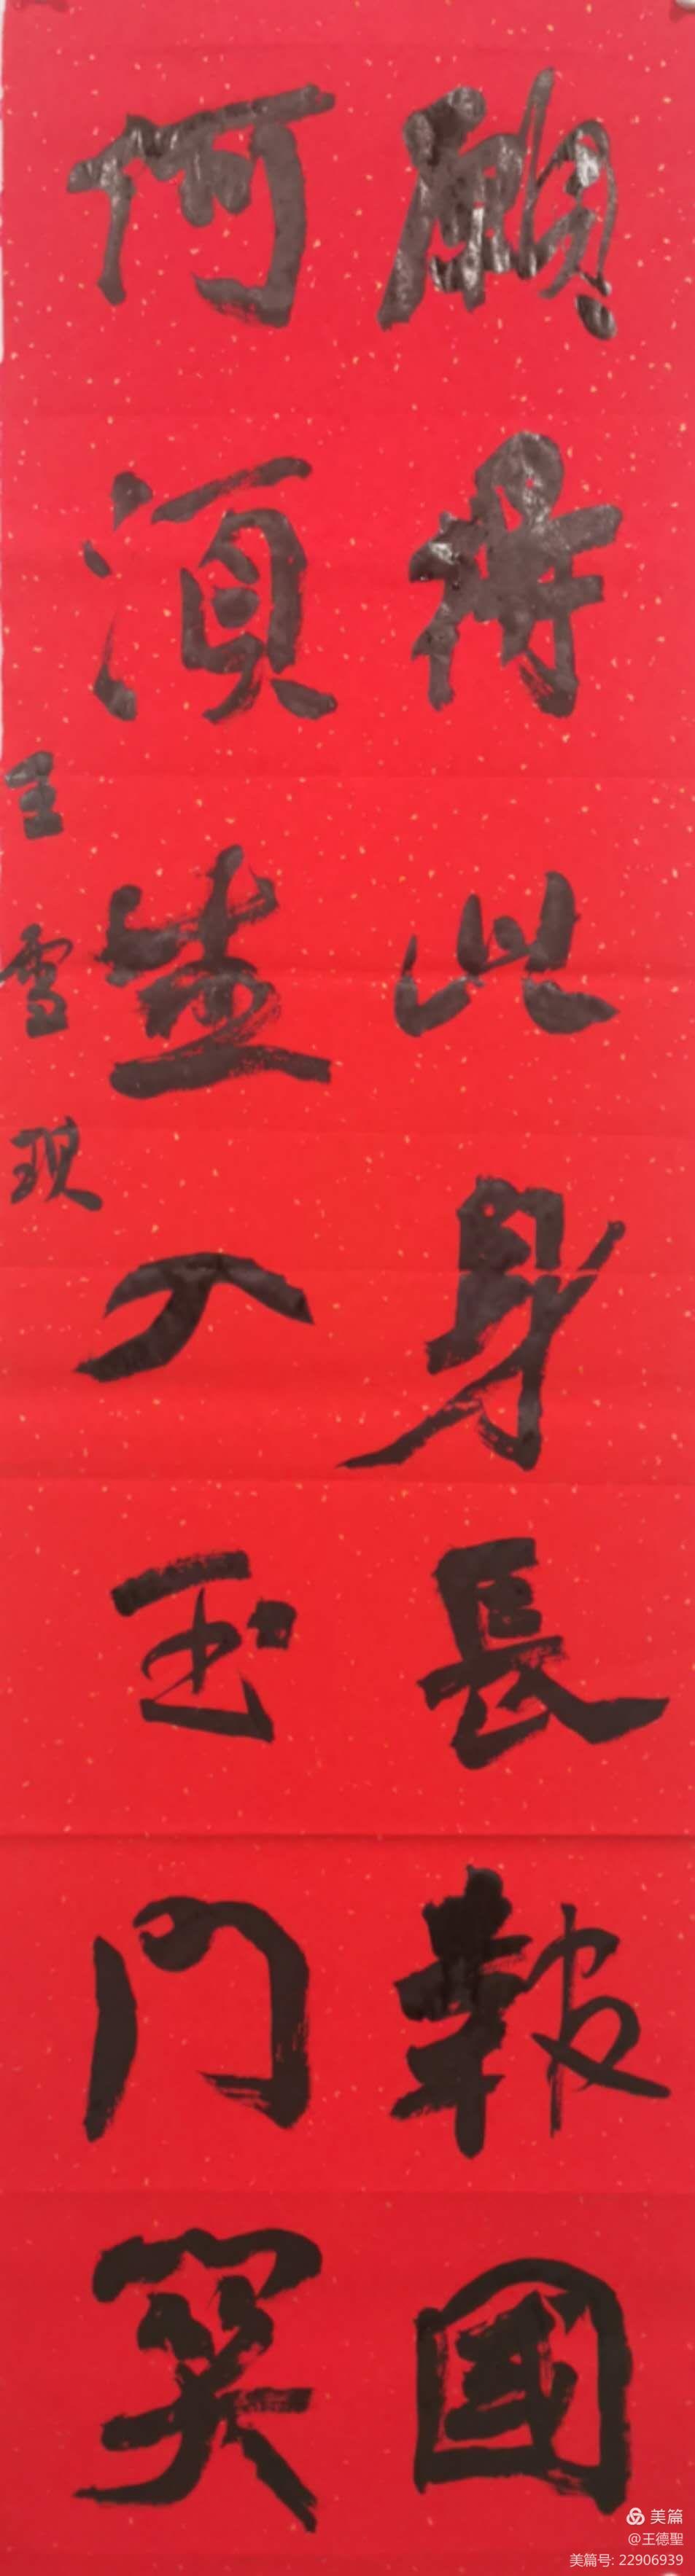 願得此身長報國
何須生入玉門関
王雪現
美篇
@王德聖
美篇号: 22906939